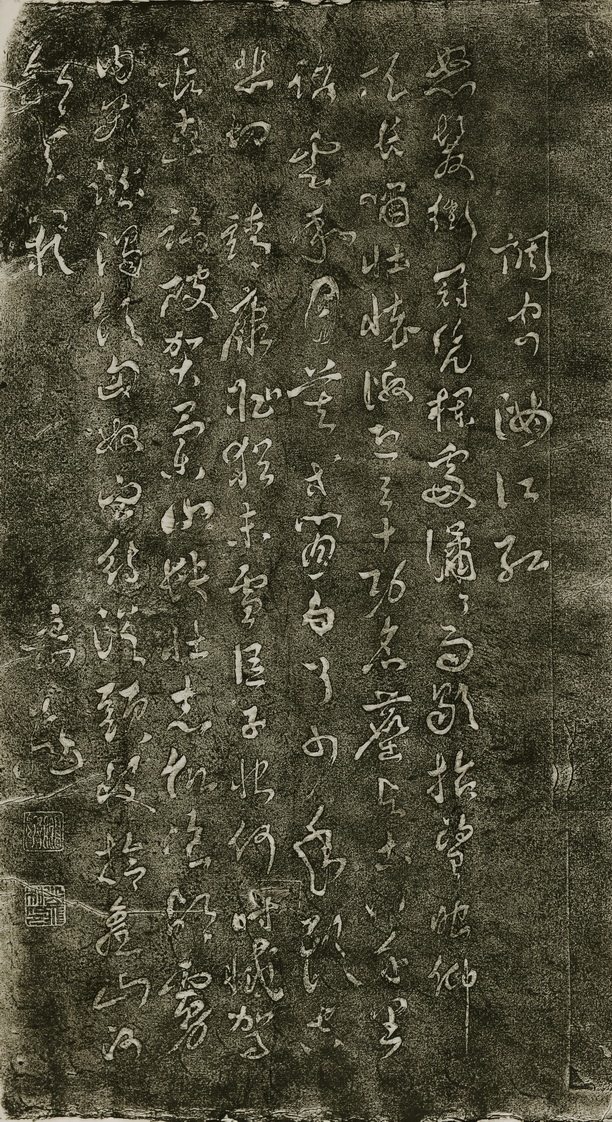 調寄滿江紅
怒髮衝冠憑欄處瀟瀟雨歇抬望眼仰
天長嘯壯懷激烈三十功名塵與土八千里
路雲和月莫等閒白了少年頭空
悲切 靖康恥猶未雪臣子恨何時滅駕
長車踏破賀蘭山缺壯志飢餐胡虜
肉笑談渴飲匈奴血待從頭收拾舊山河
朝天闕
岳飛